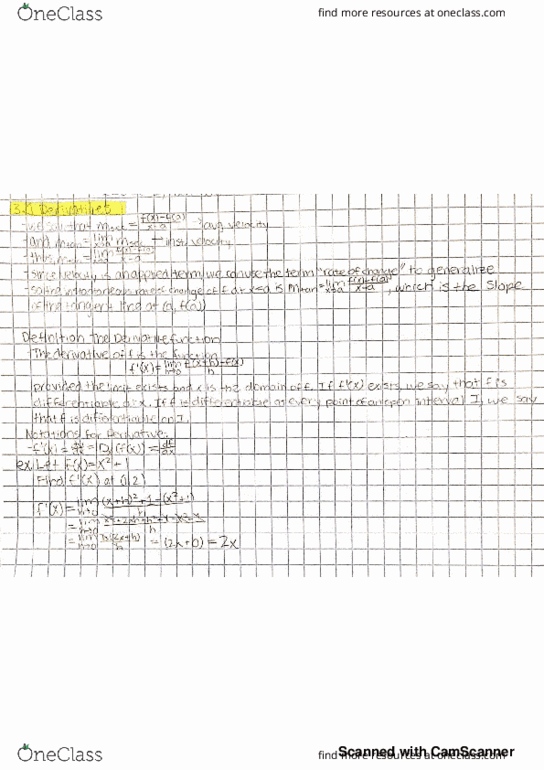 OneClass
find more resources at oneclass.com
3.1 Derivatives
- we saw that m_sec = f(x)-f(a) / x-a → avg velocity
- and m_tan = lim x→a m_sec → inst. velocity
- thus, m_tan = lim x→a f(x)-f(a) / x-a
- since velocity is an applied term, we can use the term "rate of change" to generalize
- so the instantaneous rate of change of f at x=a is m_tan = lim x→a f(x)-f(a) / x-a, which is the slope
of the tangent line at (a, f(a))
Definition The Derivative function
- The derivative of f is the function
f'(x) = lim h→0 f(x+h)-f(x) / h
provided the limit exists and x is the domain of f. If f'(x) exists, we say that f is
differentiable at x. If f is differentiable at every point of an open interval I, we say
that f is differentiable on I.
Notations for Derivative:
- f'(x) = dy/dx = D (f(x)) = df/dx
ex. Let f(x) = x² + 1
Find f'(x) at (1,2)
f'(x) = lim h→0 (x+h)² + 1 - (x²+1) / h
= lim h→0
= lim h→0 h(2x+h) / h = (2x+0) = 2x
OneClass
find more resources at oneclass.com
Scanned with CamScanner